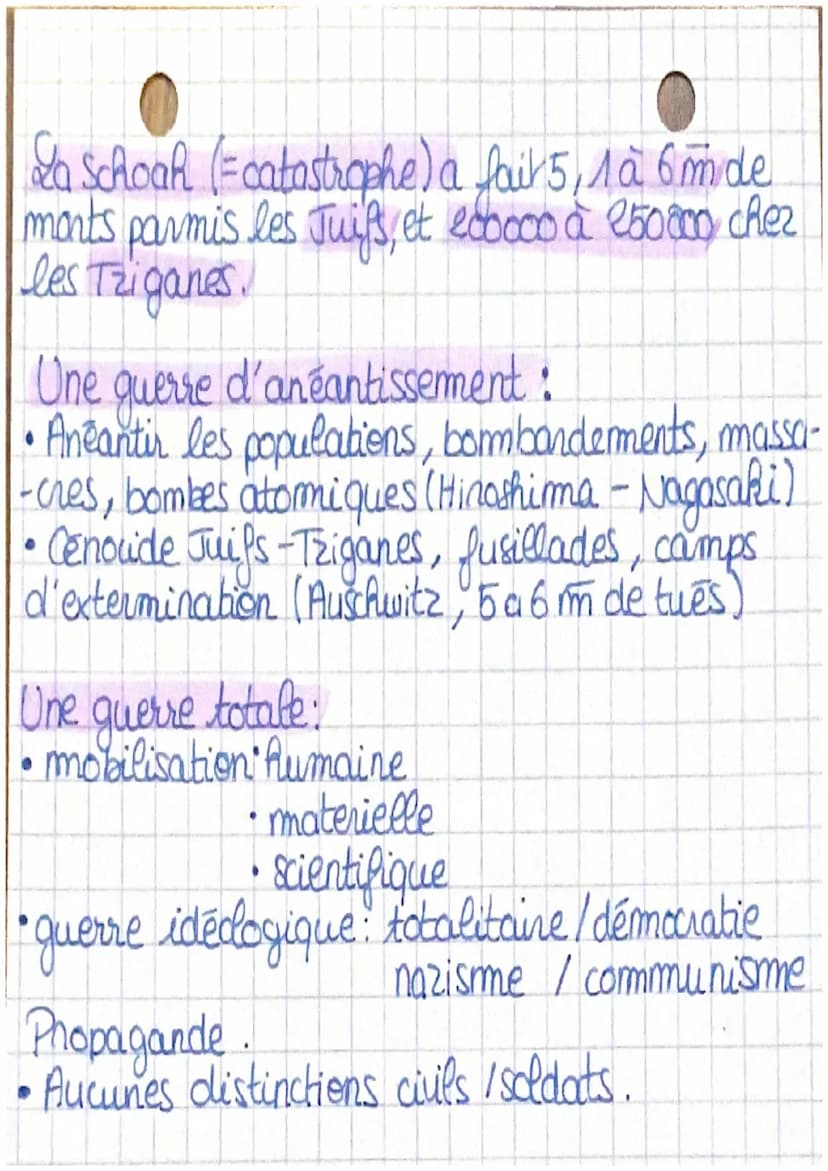 La schoah (=catastrophe) a fait 5,1 à 6 m̄ de
morts parmis les Juifs, et 200000 à 250000 chez
les Tziganes.
Une guerre d'anéantissement :
• Anéantir les populations, bombardements, massa-
-cres, bombes atomiques (Hiroshima - Nagasaki)
• Génocide Juifs -Tziganes, fusillades, camps
d'extermination (Auschwitz, 5 a 6 m̄ de tués)
Une guerre totale :
• mobilisation • humaine
• materielle
• scientifique
• guerre idéologique : totalitaire / démocratie
nazisme / communisme
Propagande .
• Aucunes distinctions civils / soldats .